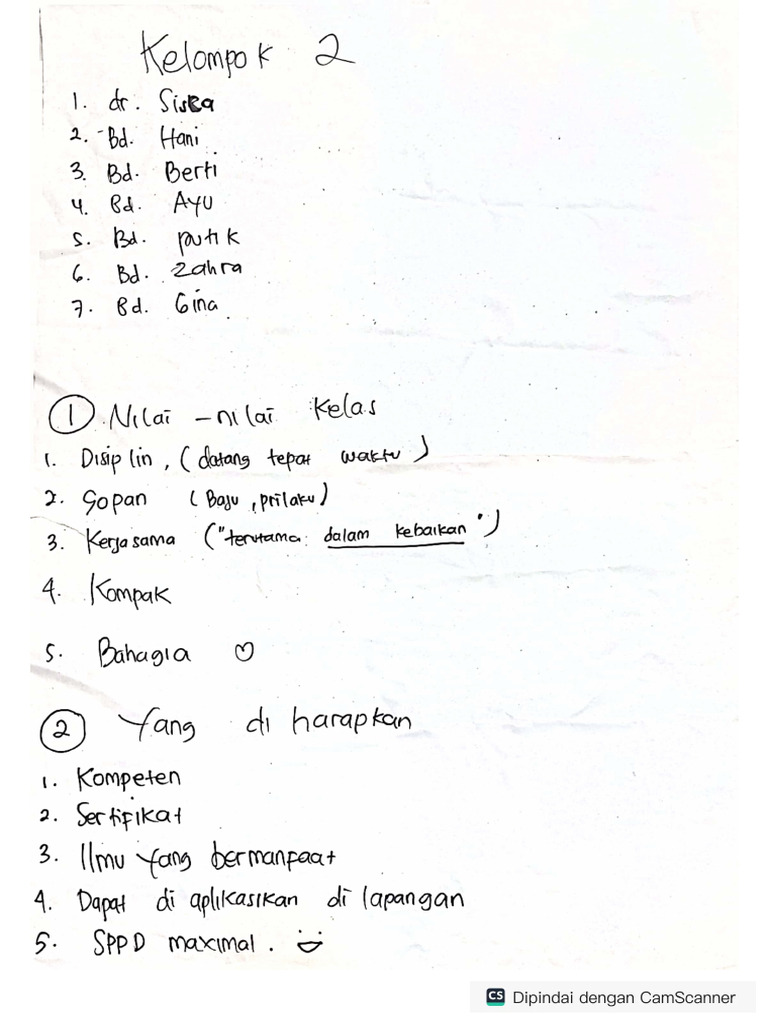 Kelompok 2
1. dr. Siska
2. Bd. Hani
3. Bd. Berti
4. Bd. AYU
5. Bd. putik
6. Bd. Zahra
7. Bd. Gina
1 Nilai - nilai Kelas
1. Disiplin, (datang tepat waktu)
2. Sopan (Baju, prilaku)
3. Kerjasama ("terutama dalam kebaikan")
4. Kompak
5. Bahagia ♡
2 Yang di harapkan
1. Kompeten
2. Sertifikat
3. Ilmu yang bermanfaat
4. Dapat di aplikasikan di lapangan
5. SPPD maximal.
CS Dipindai dengan CamScanner